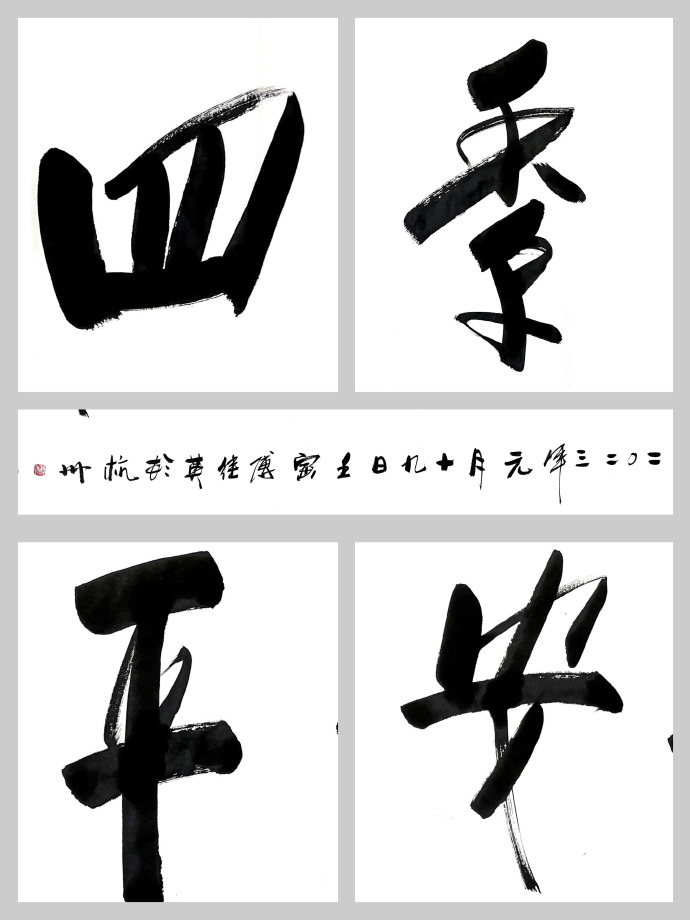 四季
二〇二三年元月十九日壬寅傅佳英於杭州
平安